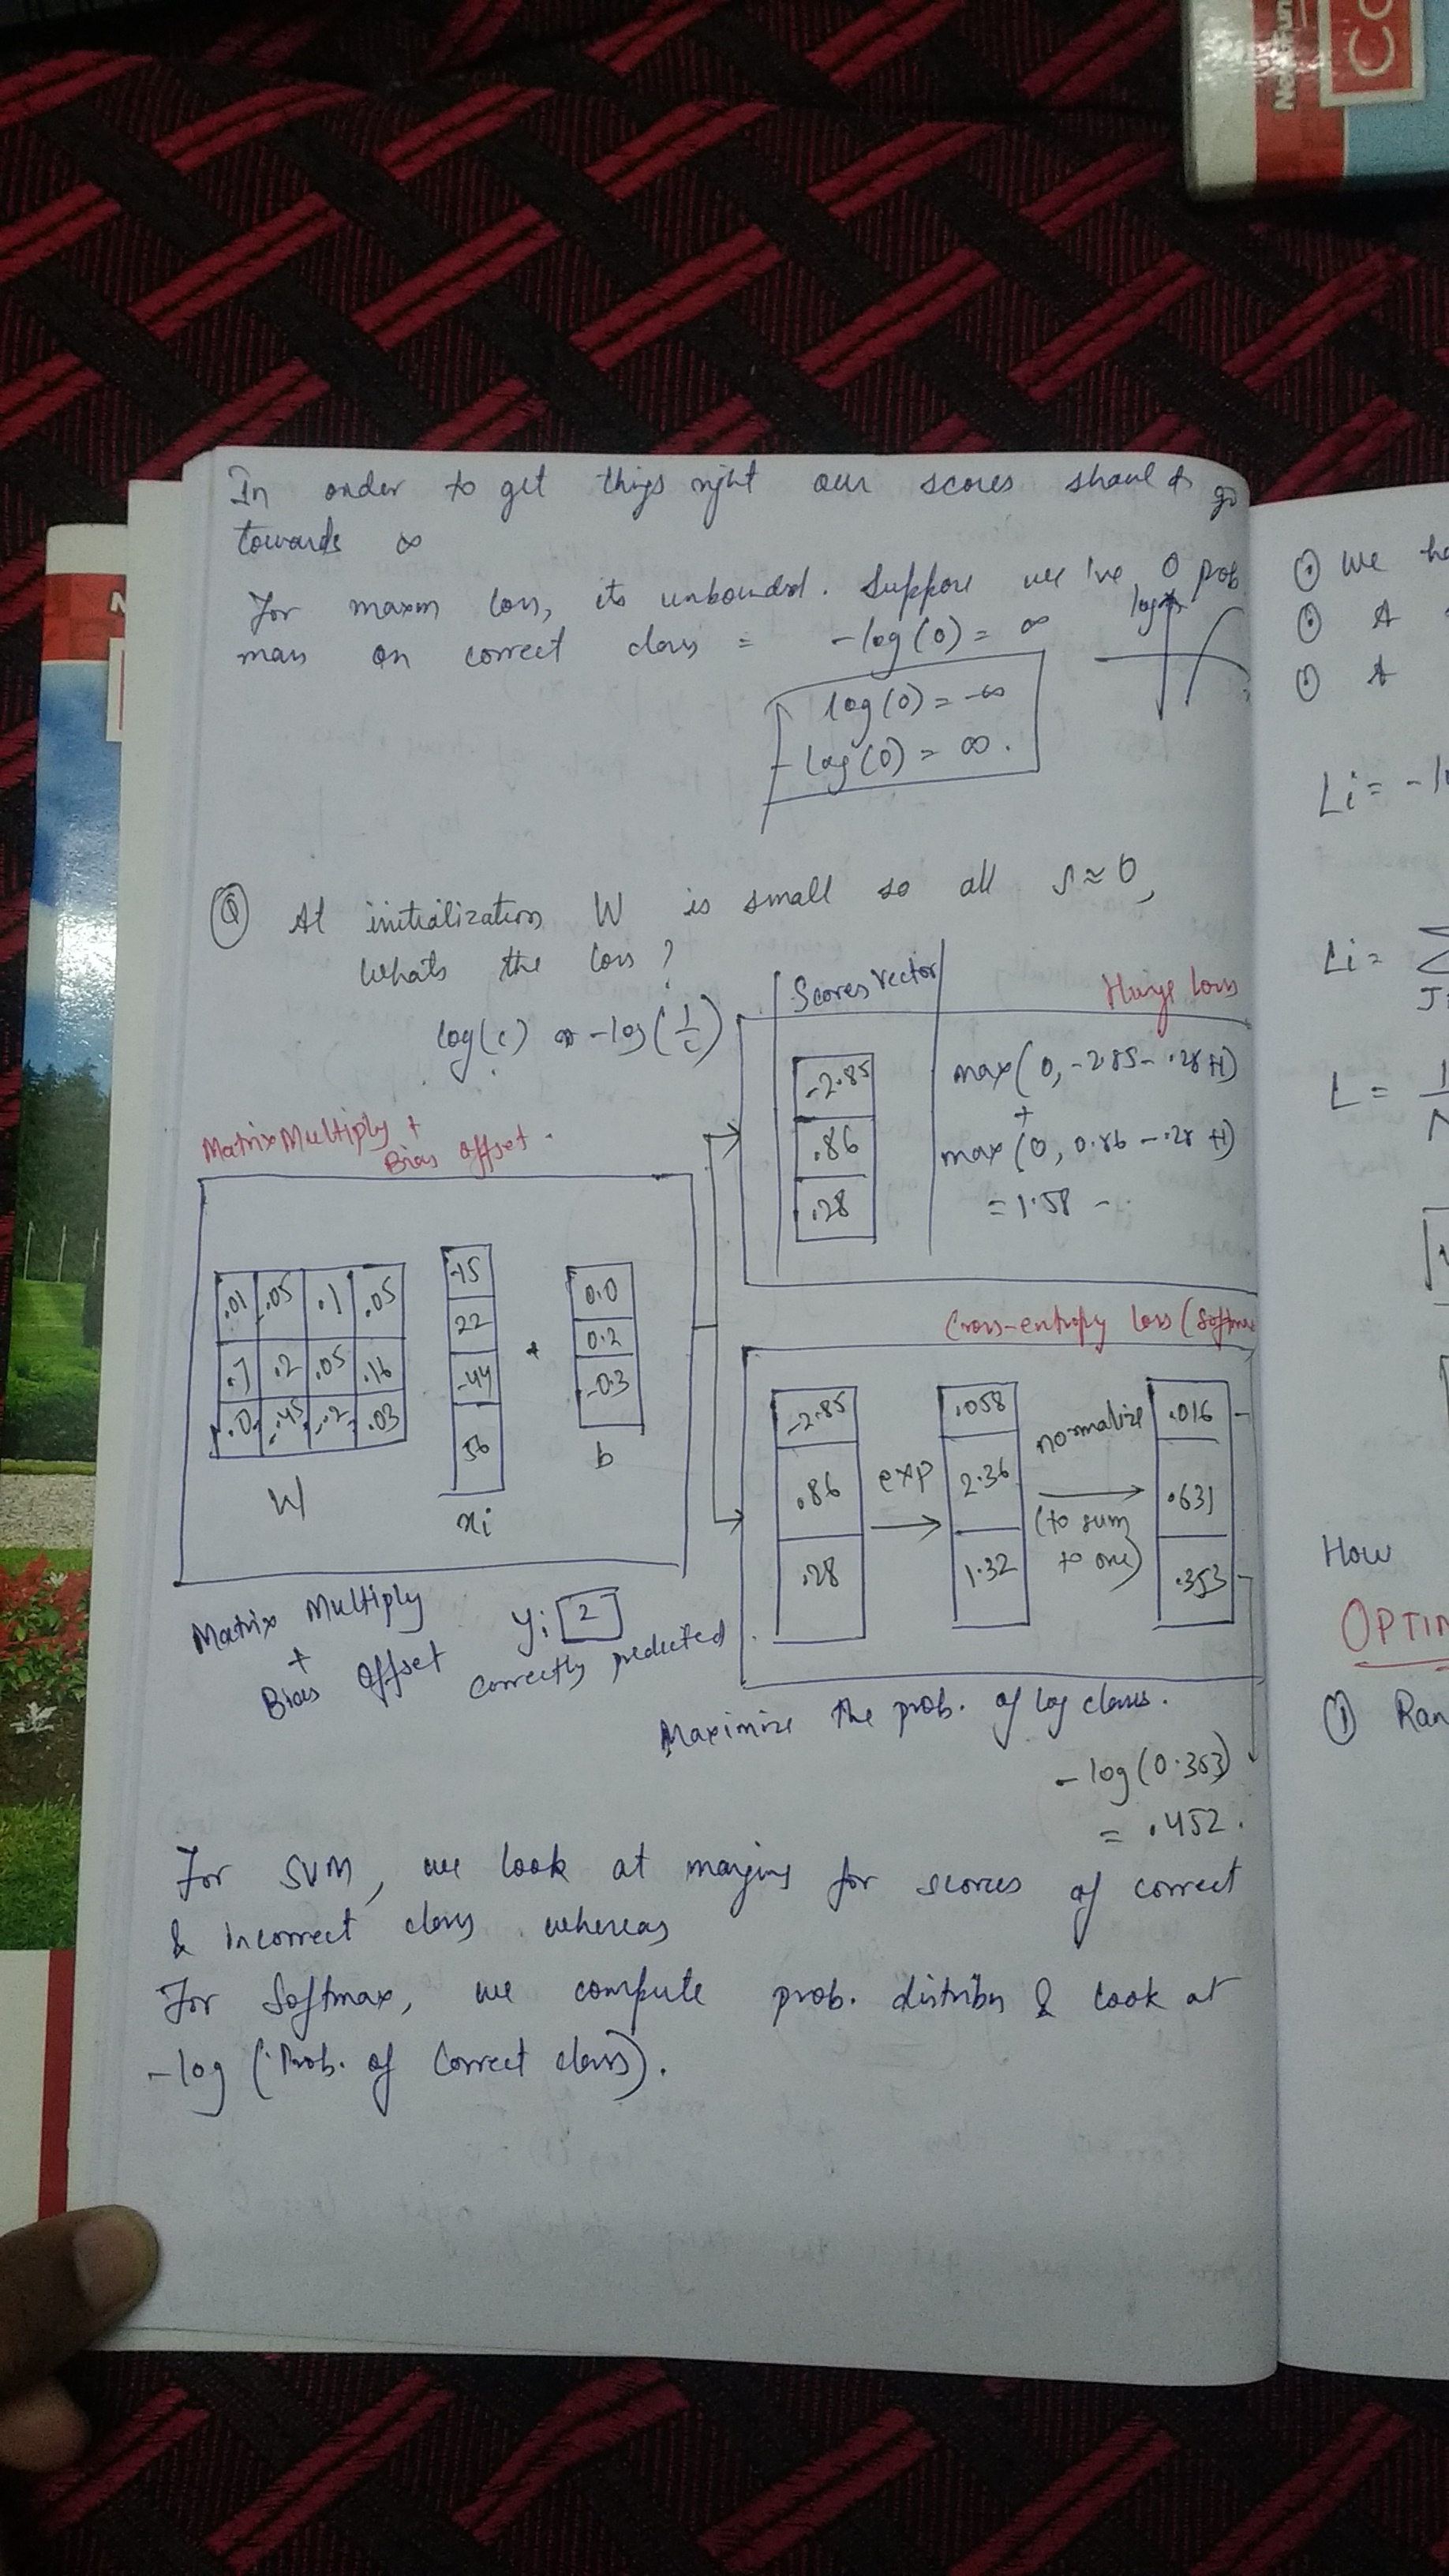 In order to get things right our scores should go
towards ∞
For maxm loss, its unbounded. Suppose we've 0 prob
mass on correct class = -log(0) = ∞
log(0) = -∞
-log(0) = ∞.
Q At initialization W is small so all s ≈ 0,
Whats the loss?
log(c) or -log(1/c)
Matrix Multiply +
Bias offset.
.01 -.05 .1 .05
.7 .2 .05 .16
.0 -.45 -.2 .03
W
-15
22
-44
56
xi
+
0.0
0.2
-0.3
b
Matrix Multiply
+
Bias offset
yi 2
correctly predicted
Scores Vector
Hinge loss
-2.85
.86
.28
max(0, -2.85 - .28 +1)
+
max(0, 0.86 - .28 +1)
= 1.58
Cross-entropy loss (Softmax
-2.85
.86
.28
exp
.058
2.36
1.32
normalize
(to sum
to one)
.016
.631
.353
Maximize the prob. of log class.
-log(0.353)
= .452.
For SVM, we look at margins for scores of correct
& incorrect class whereas
For Softmax, we compute prob. distribn & look at
-log (Prob. of Correct class).
We ha
A
A
Li = -l
Li = Σ
L = 1
N
How
OPTIM
1 Ran
Co